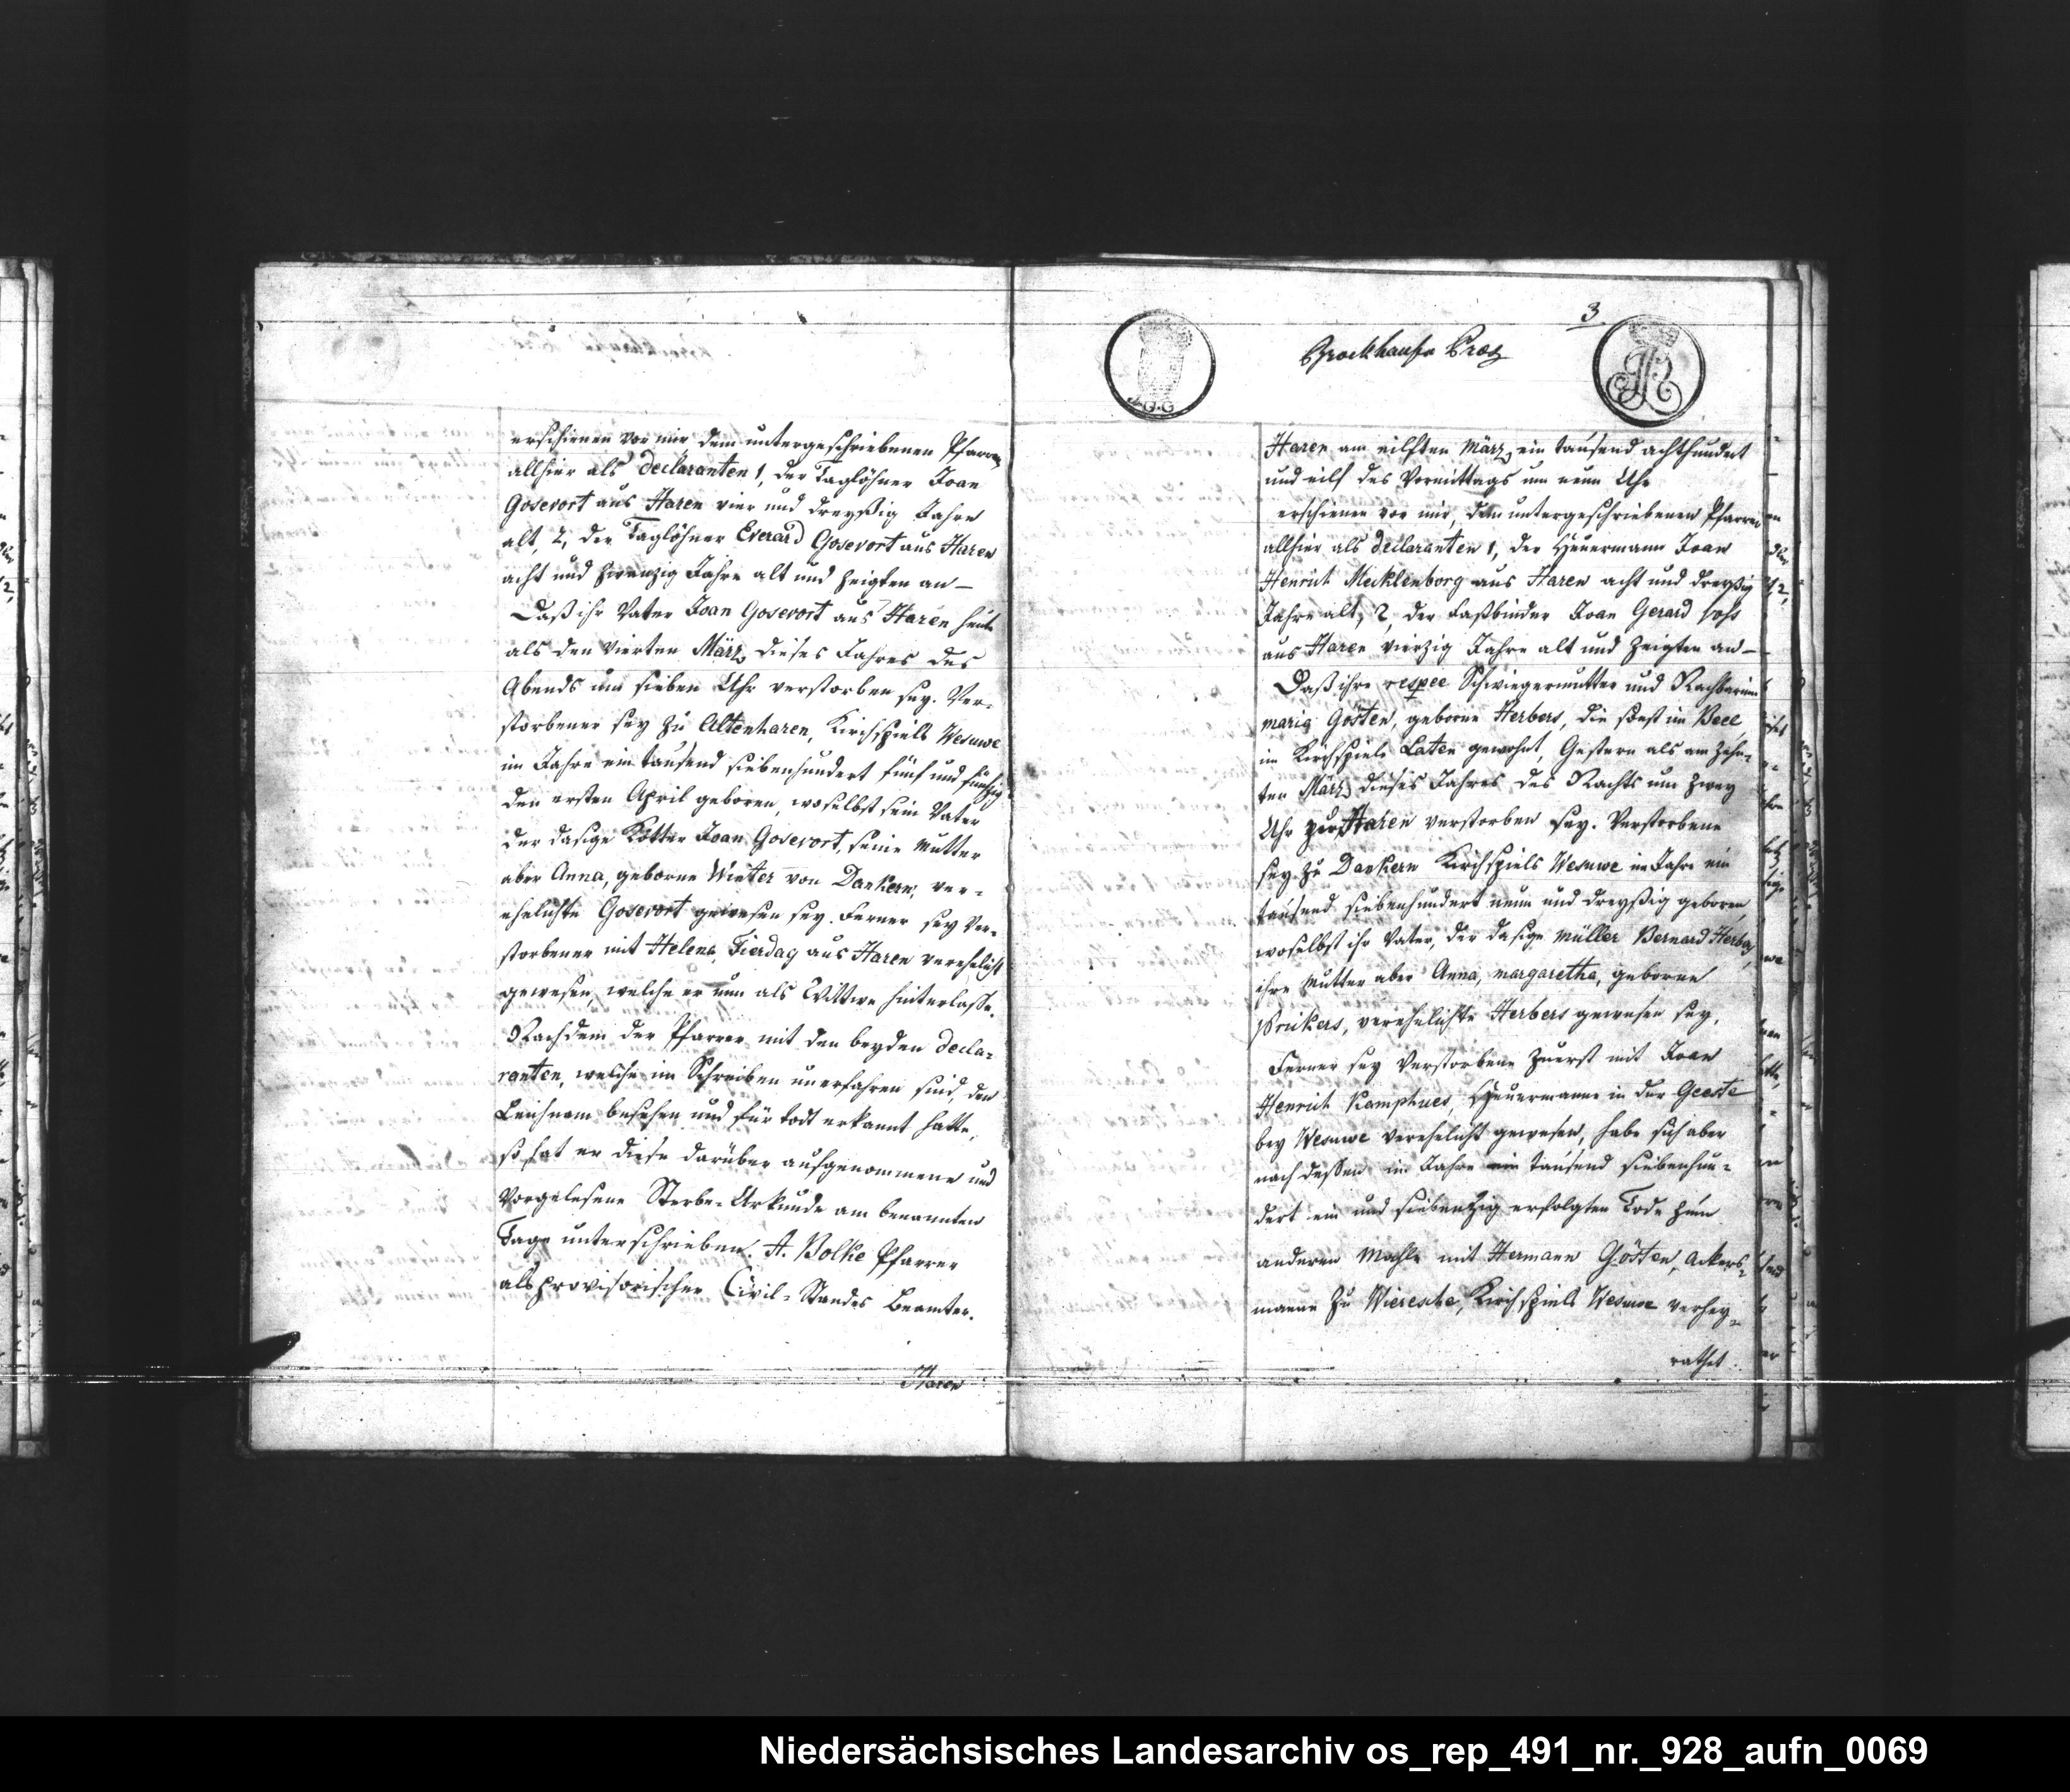 erschienen vor mir dem untergeschriebenen Pfarrer
allhier als declaranten 1, der Taglöhner Joan
Gosevort aus Haren vier und dreyßig Jahre
alt, 2, der Taglöhner Everard Gosevort aus Haren
acht und zwanzig Jahre alt und zeigten an –
Daß ihr Vater Joan Gosevort aus Haren heute
als den vierten März dieses Jahres des
Abends um sieben Uhr verstorben sey. Ver-
storbener sey zu Altenharen, Kirchspiels Wesuwe
im Jahre ein tausend siebenhundert fünf und fünfzig
den ersten April geboren, woselbst sein Vater
der dasige Kötter Joan Gosevort, seine Mutter
aber Anna, geborne Winter von Dankern, ver-
ehelichte Gosevort gewesen sey. Ferner sey Ver-
storbener mit Helena Fierdag aus Haren verehelicht
gewesen, welche er nun als Wittwe hinterlasse.
Nachdem der Pfarrer mit den beyden decla-
ranten, welche im Schreiben unerfahren sind, den
Leichnam besehen und für todt erkannt hatte,
so hat er diese darüber aufgenommene und
vorgelesene Sterbe-Urkunde am benannten
Tage unterschrieben. A. Bolke Pfarrer
als provisorischer Civil-Standes Beamter.
Haren
3
Brockhausen
J.G.G
Haren am eilften März ein tausend achthundert
und eilf des Vormittags um neun Uhr
erschienen vor mir, dem untergeschriebenen Pfarrer
allhier als declaranten 1, der Heuermann Joan
Henrich Mecklenborg aus Haren acht und dreyßig
Jahre alt, 2, der Faßbinder Joan Gerard
aus Haren vierzig Jahre alt und zeigten an –
Daß ihre respec Schwiegermutter und Nachbarinn
maria Gösten, geborne Herbers, die sonst im
im Kirchspiele Laten gewohnt, Gestern als am zehn-
ten März dieses Jahres des Nachts um zwey
Uhr zu Haren verstorben sey. Verstorbene
sey zu Dankern Kirchspiels Wesuwe im Jahre ein
tausend siebenhundert neun und dreyßig geboren,
woselbst ihr Vater, der dasige Müller Bernard Herbers,
ihre Mutter aber Anna, margaretha, geborne
verehelichte Herbers gewesen sey.
Ferner sey Verstorbene zuerst mit Joan
Henrich Kamphues, Heuermanne in der Geeste
bey Wesuwe verehelicht gewesen, habe sich aber
nach dessen im Jahre ein tausend siebenhun-
dert ein und siebenzig erfolgten Tode zum
anderen Mahle mit Hermann Gösten, Ackers-
manne zu Wieresche, Kirchspiels Wesuwe verhey-
rathet
Niedersächsisches Landesarchiv os_rep_491_nr._928_aufn_0069